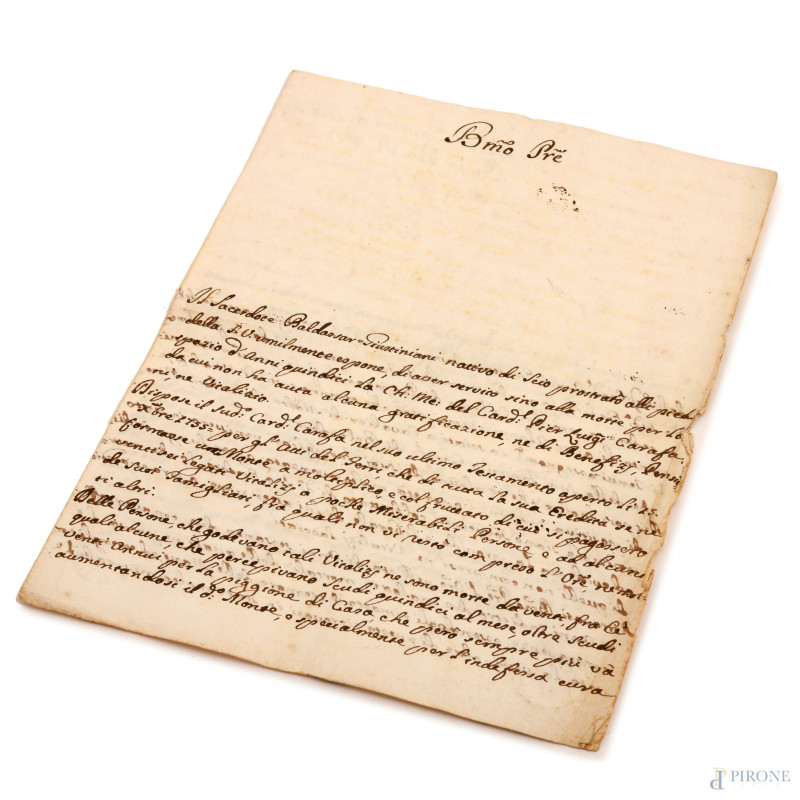 Bm̃o Pr̃e
Il Sacerdote Baldassar Giustiniani nattivo di Scio prostrato alli piedi
della S. V. umilmente espone, di aver servito sino alla morte per lo
spazio d'Anni quindici la Ch: Me: del Card.l Pier Luigi Carafa
da cui non ha auta alcuna gratificazione, nè di Beneficj, Pensi-
ni, ne Vitalizio.
Dispose il sud.o Card.l Carafa nel suo ultimo Testamento aperto li
Xbre 1755. per gl'Atti del che di tutta la sua Eredità se ne
formasse un Monte a moltiplico, e col fruttato di cui si pagassero
Vitalizj a poche Miserabili Persone, e ad alcuni
de suoi Famigliari, fra quali non vi restò compreso l'Ore, ne mol-
ti altri.
Delle Persone, che godevano tali Vitalizj ne sono morte da venti, fra le
quali alcune, che percepivano Scudi quindici al mese, oltre Scudi
venti annui per la piggione di Casa, che però sempre più và
aumentandosi il d.o Monte, e specialmente per l'indefessa cura
PIRONE